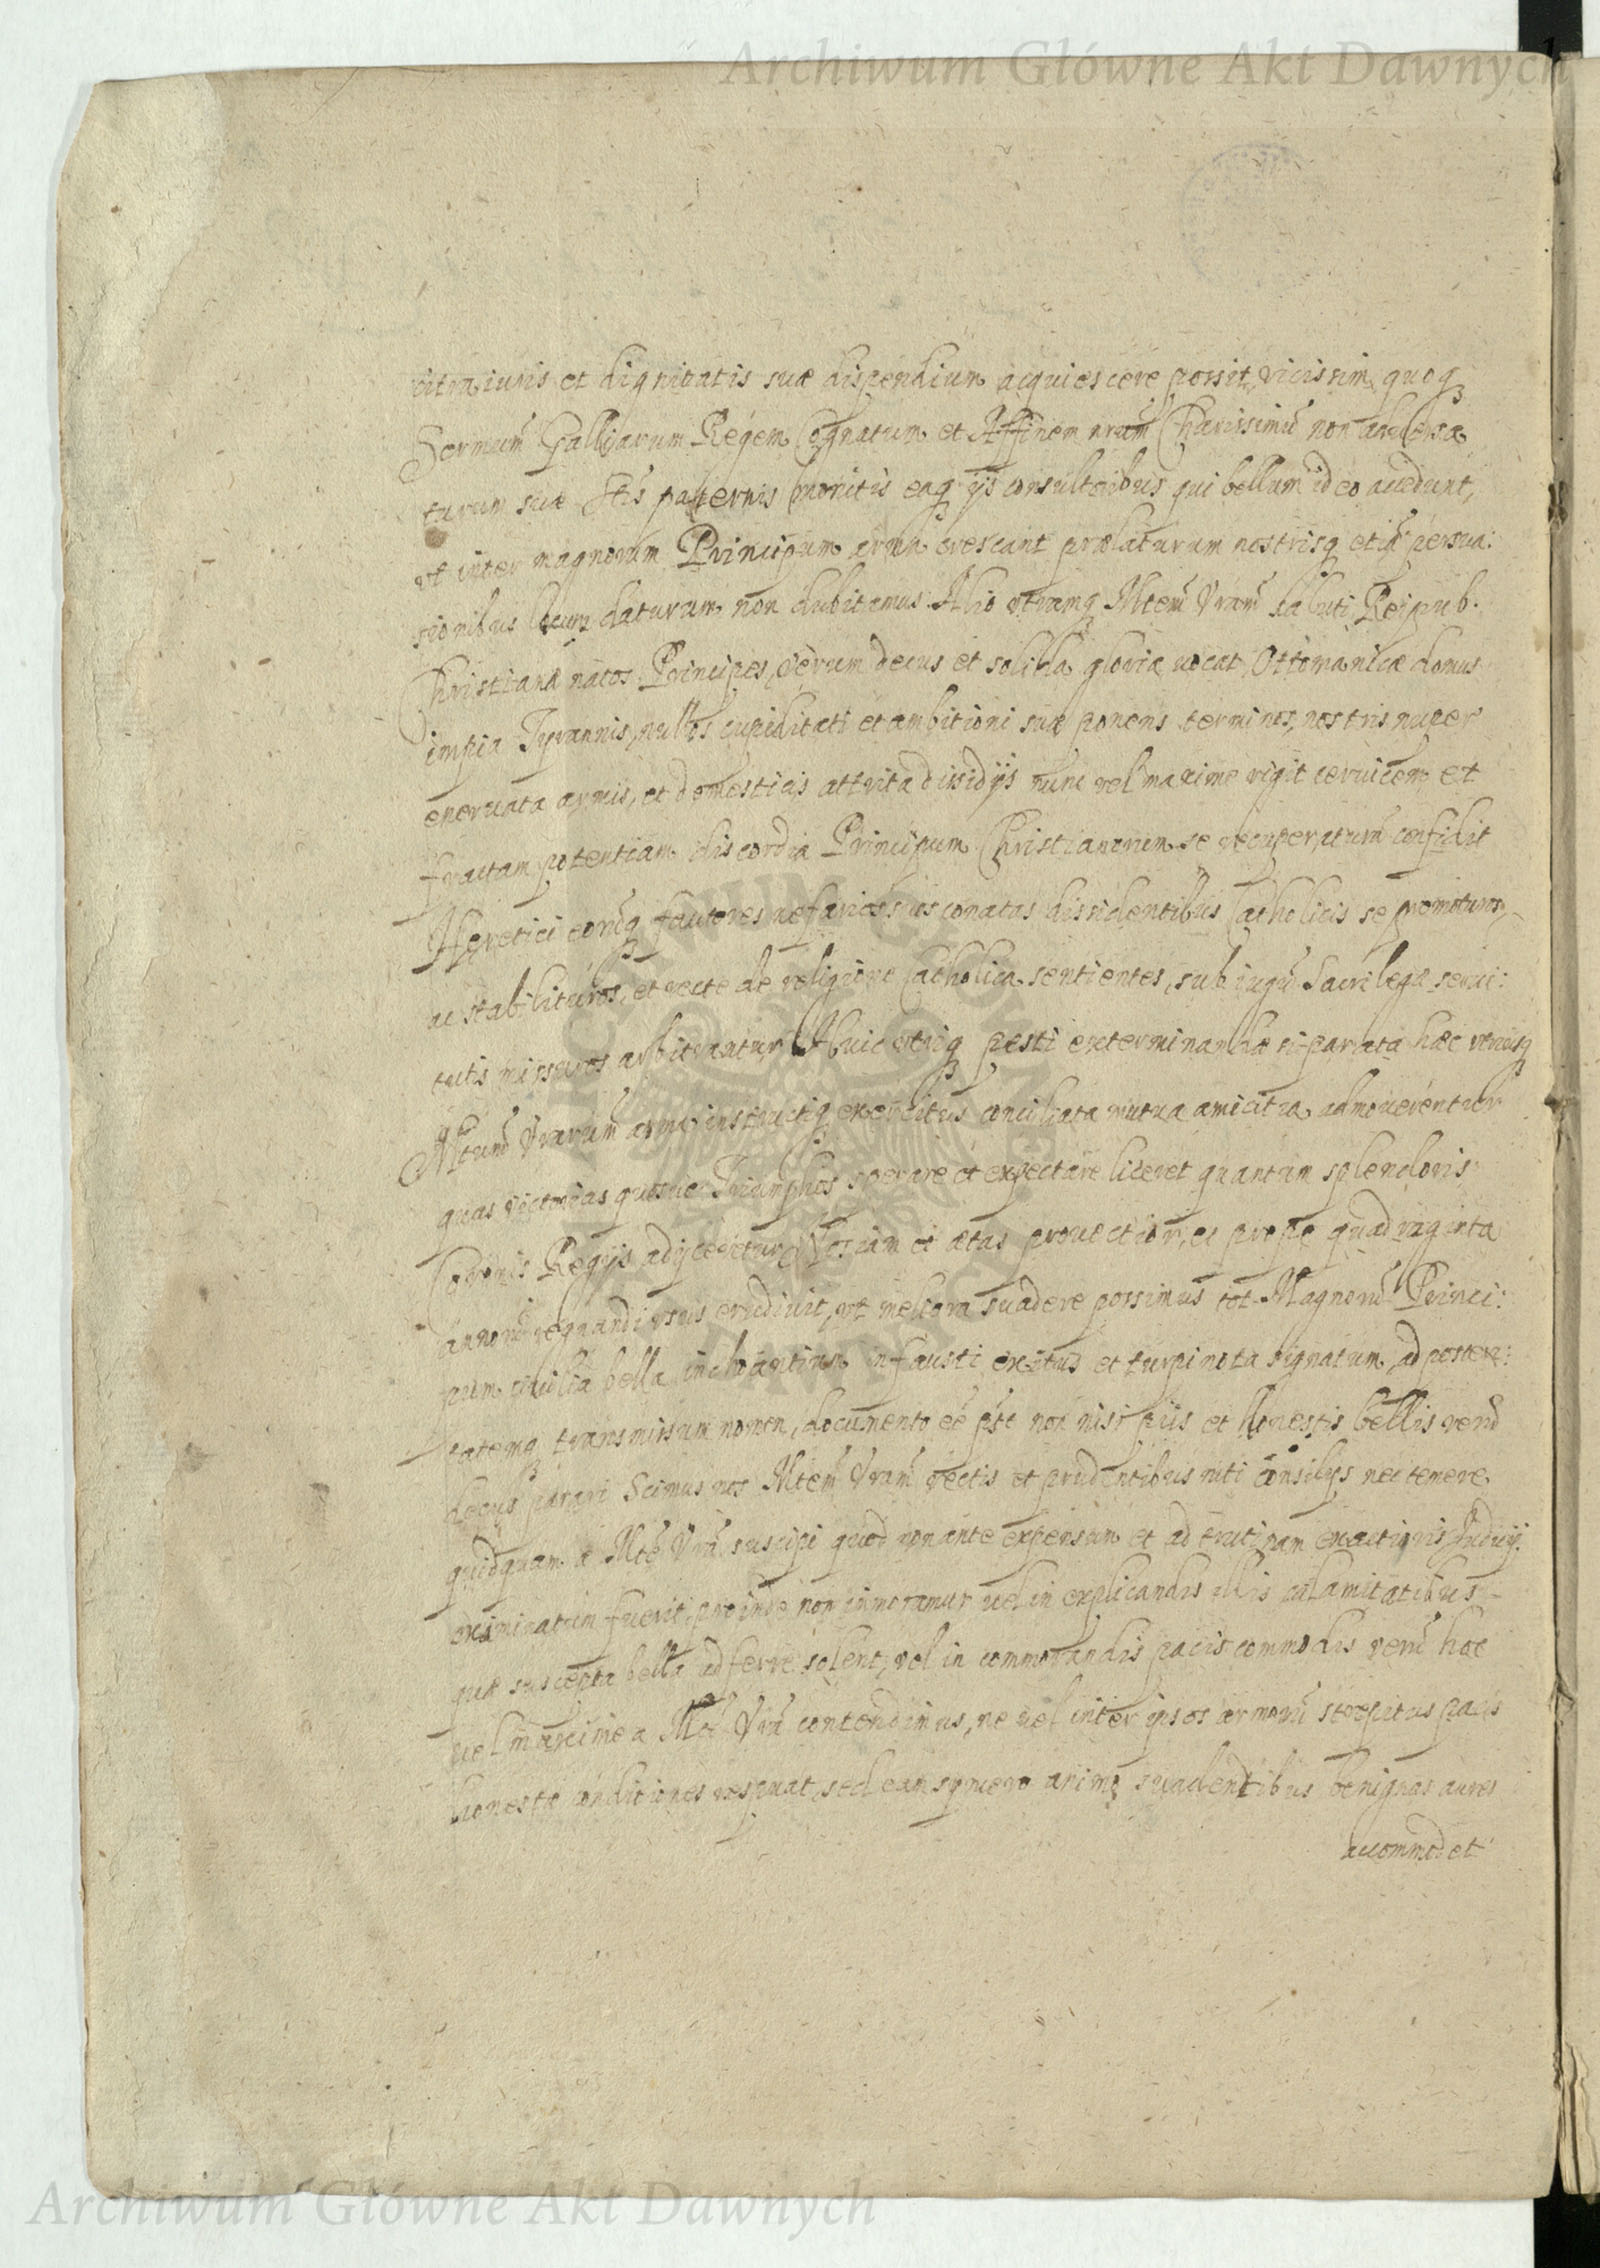 Archiwum Główne Akt Dawnych
citra iuris et dignitatis suæ dispendium acquiescere possit, vicissim quoq
Sermum Galliarum Regem Cognatum et Affinem nrum Charissimũ non adversa
turum suæ Stis paternis monitis eaq ijs consultoribus qui bellum ideo accedunt,
ut inter magnorum Principum arma crescant prælaturum nostrisq etiã persua:
sionibus locum daturum non dubitamus. Alio utramq Mtem Vram saluti Reipub.
Christianæ natos Principes, verum decus et solida gloria vocat. Ottomanicæ domus
impia Tyrannis, nullos cupiditati et ambitioni suæ ponens terminos, nostris nuper
eneruata armis, et domesticis attrita dissidijs nunc vel maxime rigit ceruicem et
fractam potentiam discordia Principum Christianorum se recuperaturũ confidit
Heretici eorũq fautores nefarios suos conatus dissidentibus Catholicis se promoturos
ac stabilituros, et recte de religione Catholica sentientes, sub iugũ Sacrilegæ serui:
tutis missuros arbitrantur. Huic utriq pesti exterminandæ si parata hæc utriusq
Mtum Vrarum arma instructiq exercitus conciliata mutua amicitia admouerentur
quas victorias quosue Triumphos sperare et expectare liceret quantum splendoris
Coronis Regijs adijceretur. Nos iam et ætas prouectior, et prope quadraginta
annorũ regnandi usus erudiuit, ut meliora suadere possimus tot Magnorũ Princi:
pum ciuilia bella inchoantium infausti exitus et turpi nota signatum ad posteri:
tatemq transmissum nomen, documento eẽ pst non nisi piis et honestis bellis verũ
decus parari Scimus nos Mtem Vram rectis et prudentibus niti consilijs nec temere
quidquam a Mte Vra suscipi quod non ante expensum et ad trutinam exactioris Judicij
examinatum fuerit, proinde non immoramur uel in explicandis illis calamitatibus
quæ suscepta bella adferre solent, vel in commorandis pacis commodis verũ hoc
uel maxime a Mte Vra contendimus, ne uel inter ipsos armorũ strepitus pacis
honestæ conditiones respuat, sed eam syncero animo suadentibus benignas aures
accommodet
Archiwum Główne Akt Dawnych